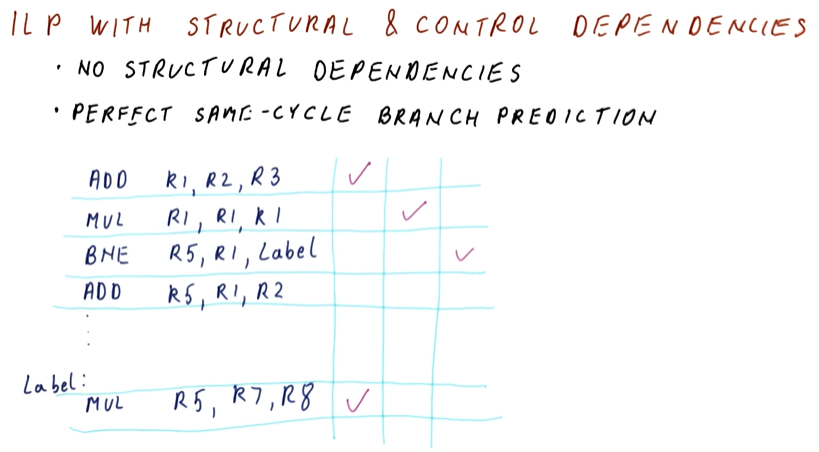 ILP WITH STRUCTURAL & CONTROL DEPENDENCIES
· NO STRUCTURAL DEPENDENCIES
· PERFECT SAME-CYCLE BRANCH PREDICTION
ADD R1, R2, R3 ✓
MUL R1, R1, R1 ✓
BNE R5, R1, Label ✓
ADD R5, R1, R2
⋮
Label:
MUL R5, R7, R8 ✓